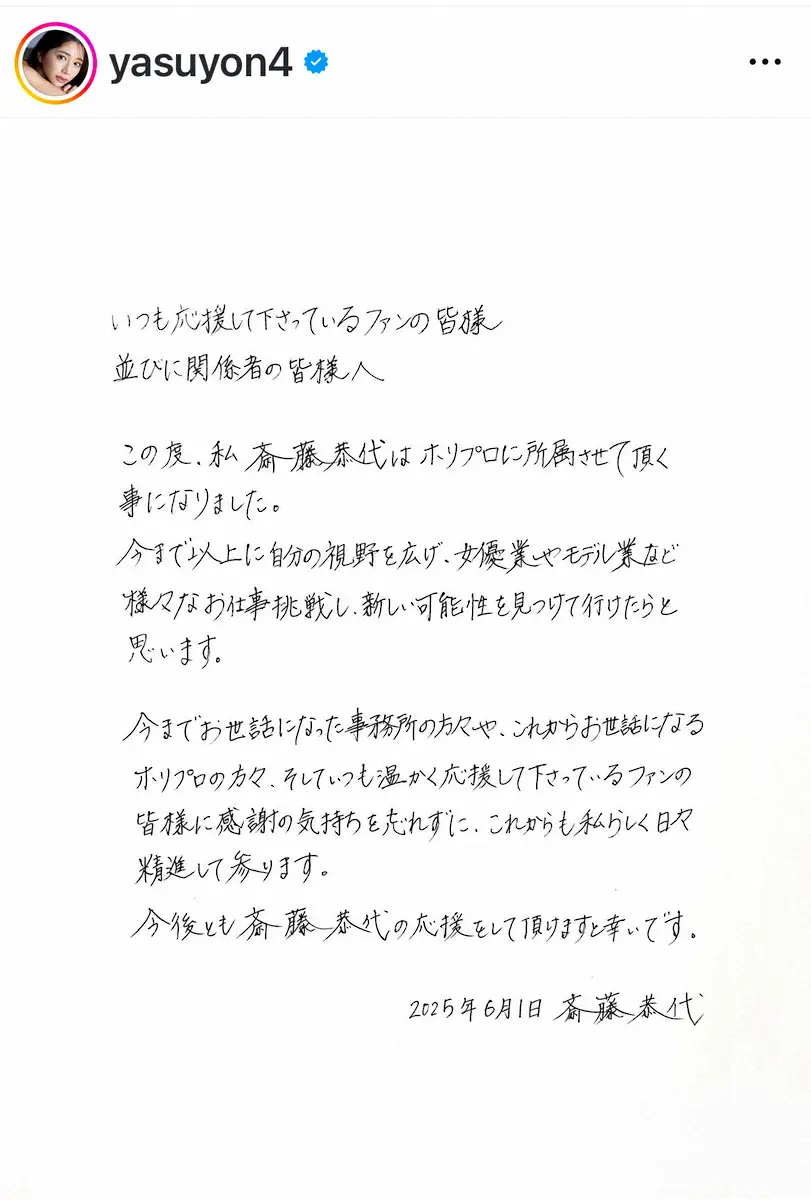 yasuyon4
いつも応援して下さっているファンの皆様
並びに関係者の皆様へ
この度、私 斎藤恭代はホリプロに所属させて頂く
事になりました。
今まで以上に自分の視野を広げ、女優業やモデル業など
様々なお仕事挑戦し、新しい可能性を見つけて行けたらと
思います。
今までお世話になった事務所の方々や、これからお世話になる
ホリプロの方々、そしていつも温かく応援して下さっているファンの
皆様に感謝の気持ちを忘れずに、これからも私らしく日々
精進して参ります。
今後とも斎藤恭代の応援をして頂けますと幸いです。
2025年6月1日 斎藤恭代